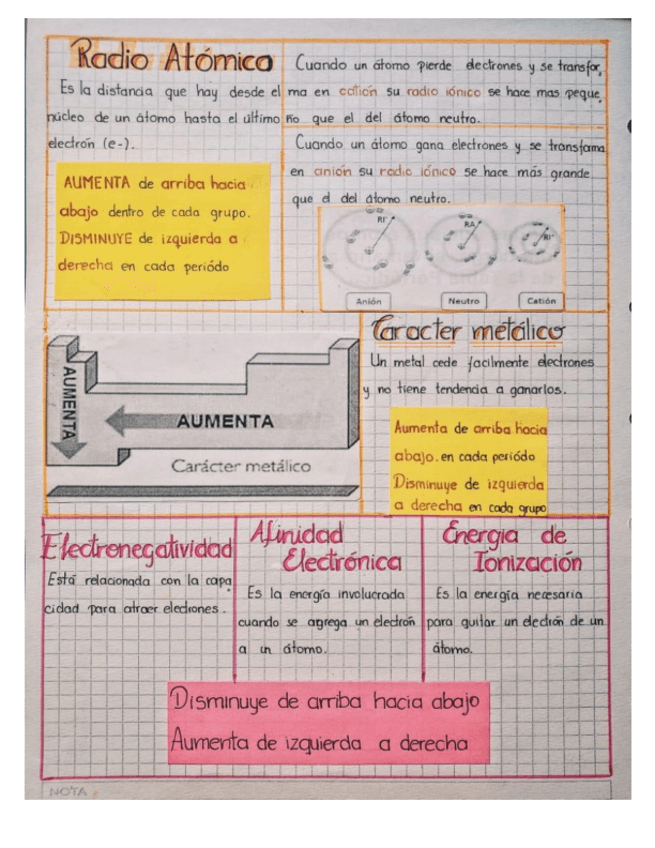 Radio Atómico
Es la distancia que hay desde el
núcleo de un átomo hasta el último
electrón (e-).
AUMENTA de arriba hacia
abajo dentro de cada grupo.
DISMINUYE de izquierda a
derecha en cada periódo
Cuando un átomo pierde electrones y se transfor,
ma en catión su radio iónico se hace mas peque,
ño que el del átomo neutro.
Cuando un átomo gana electrones y se transfoma
en anión su radio iónico se hace más grande
que el del átomo neutro.
RI-
RA
RI+
Anión
Neutro
Catión
AUMENTA
AUMENTA
Carácter metálico
Caracter metálico
Un metal cede facilmente electrones
y no tiene tendencia a ganarlos.
Aumenta de arriba hacia
abajo. en cada periódo
Disminuye de izquierda
a derecha en cada grupo
Electronegatividad
Está relacionada con la capa
cidad para atraer electrones.
Afinidad
Electrónica
Es la energía involucrada
cuando se agrega un electrón
a un átomo.
Energia de
Ionización
Es la energía necesaria
para quitar un electrón de un
átomo.
Disminuye de arriba hacia abajo
Aumenta de izquierda a derecha
NOTA